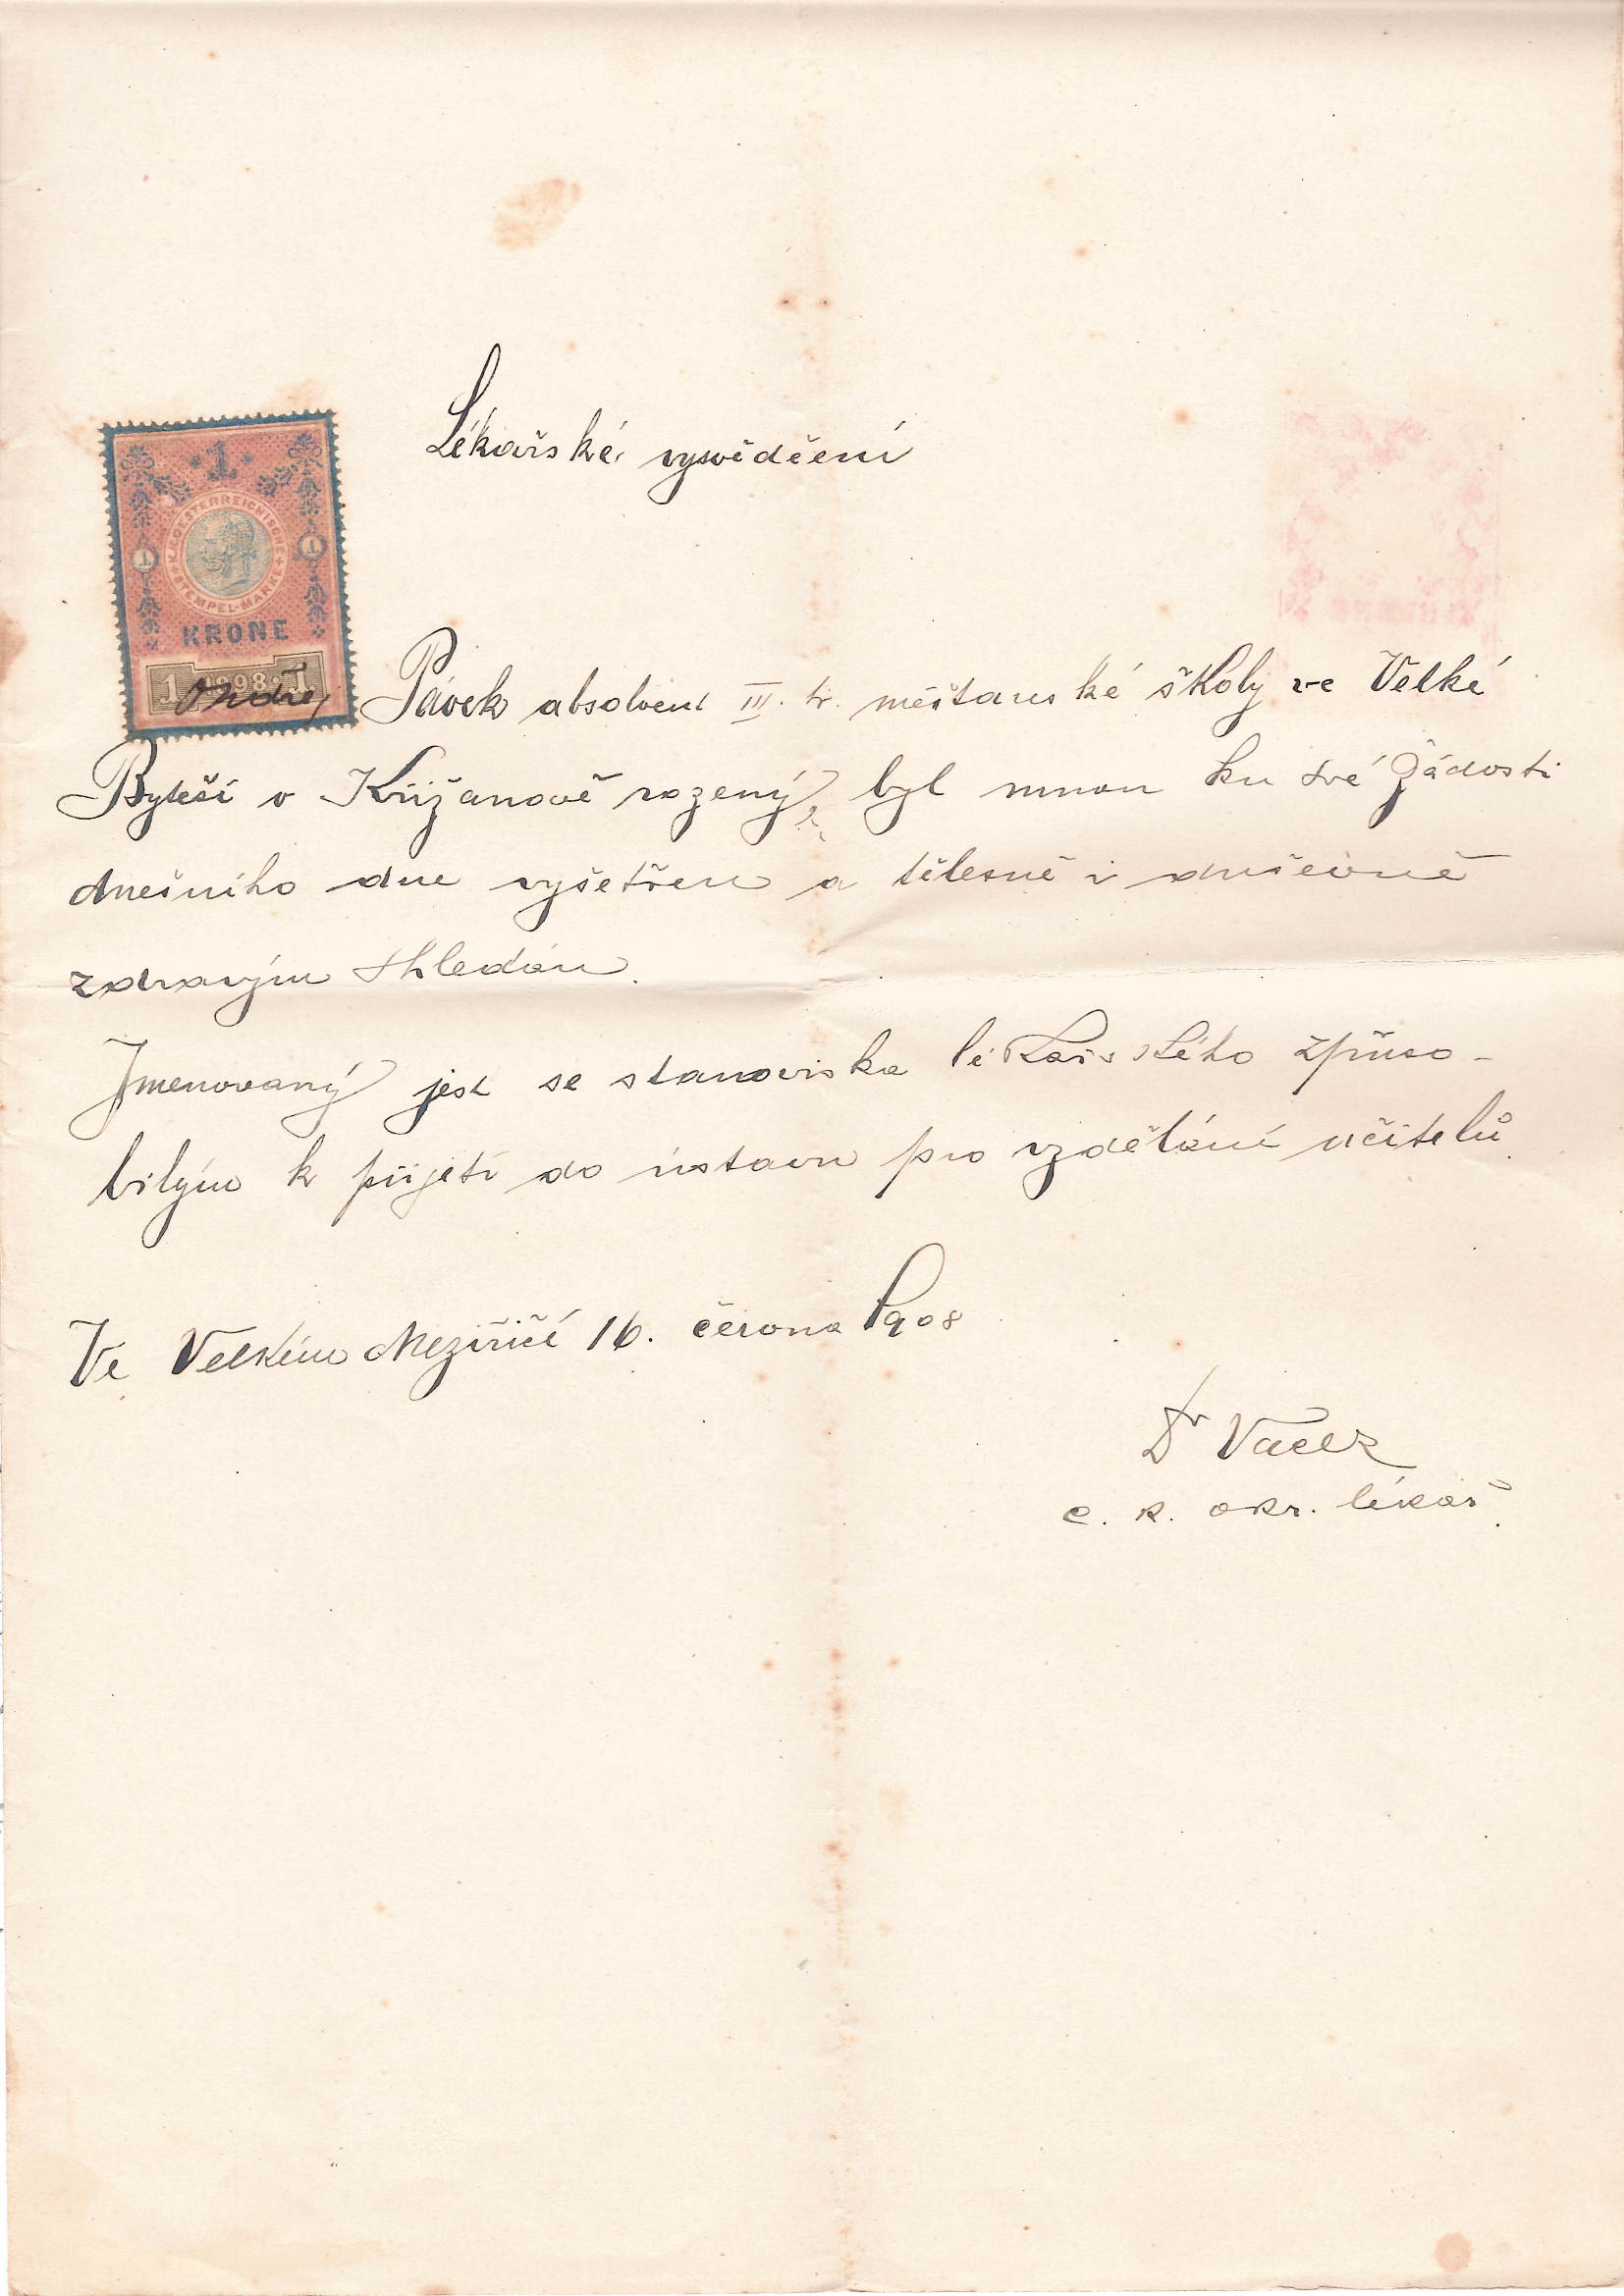 Lékařské vysvědčení
1
K.K. OESTERREICHISCHE STEMPEL-MARKE
1 1
KRONE
1 1898 1
Ondřej Pávek absolvent III. tř. měšťanské školy ve Velké
Byteši v Křižanově rozený, byl mnou ku své žádosti
dnešního dne vyšetřen a tělesně i duševně
zdravým shledán.
Jmenovaný jest se stanoviska lékařského způso-
bilým k přijetí do ústavu pro vzdělání učitelů.
Ve Velkém Meziříčí 16. června 1908
Dr Vacek
c. k. okr. lékař.